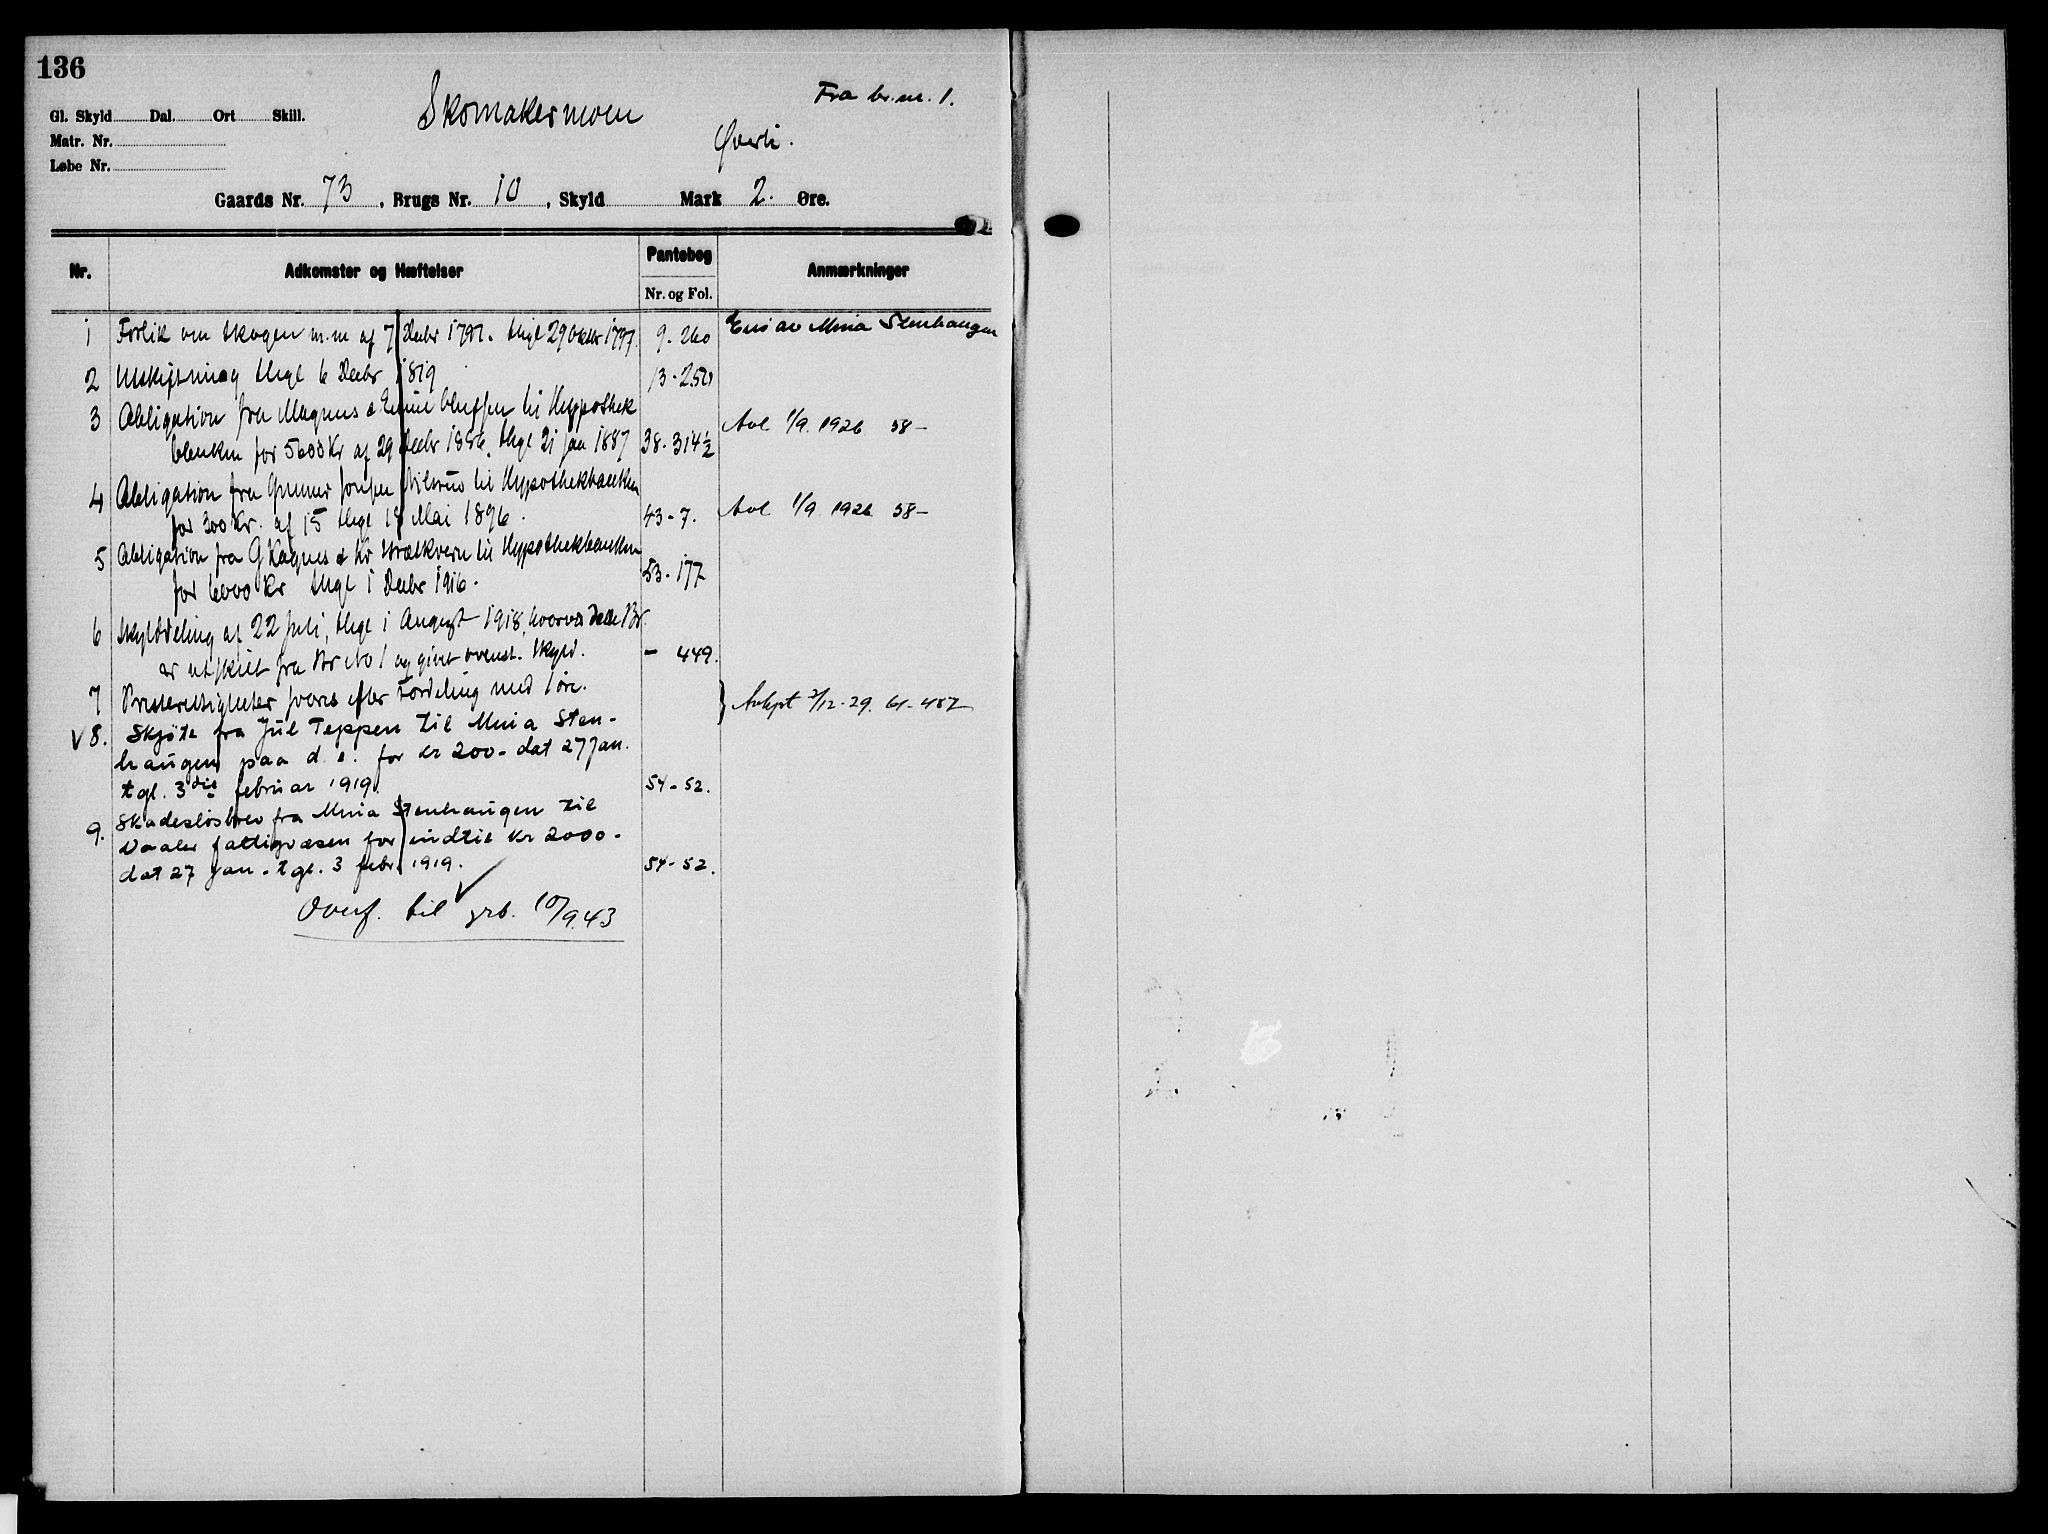 136
Skomakermoen
Fra br.nr. 1.
Øverli.
Gl. Skyld Dal. Ort Skill.
Matr. Nr.
Løbe Nr.
Gaards Nr. 73, Brugs Nr. 10, Skyld Mark 2. Øre.
Nr. Adkomster og Hæftelser Pantebog Anmærkninger
Nr. og Fol.
1 Forlik om skogen m.m af 7 Decbr 1791. thgl 29 Oktbr 1797. 9-260 Eies av Mina Stenhaugen
2 Utskiftning thgl 6 Decbr 1819 13-250
3 Obligation fra Magnus & til Hyppothek
banken for 5600 Kr af 29 Decbr 1886. thgl 21 jan 1887 38-314½ Avl 1/9 1926 58-
4 Obligation fra Gunner til Hypothekbanken
for 300 Kr. af 15 thgl 18 Mai 1896. 43-7. Avl 1/9 1926 58-
5 Obligation fra G & Kr til Hyppothekbanken
for 6000 Kr thgl 1 Decbr 1916. 53-177
6 Skylddeling af 22 Juli, thgl 1 August 1918, hvorved dette Br
er utskilt fra Br No 1 og givet ovenst. Skyld. - 449.
7 Presterettigheter svares efter Fordeling med 1 øre. } Avlyst 2/12-29. 61-487
V 8. Skjøte fra Jul Teppen til Mina Sten-
haugen paa d. e. for kr 200- dat 27 Jan.
tgl. 3die februar 1919. 54-52.
9. Skadesløsbrev fra Mina Stenhaugen til
Vaaler fattigvæsen for indtil kr 2000-
dat 27 jan- tgl. 3 febr. 1919. 54-52.
Overf. til grb. 10/9.43